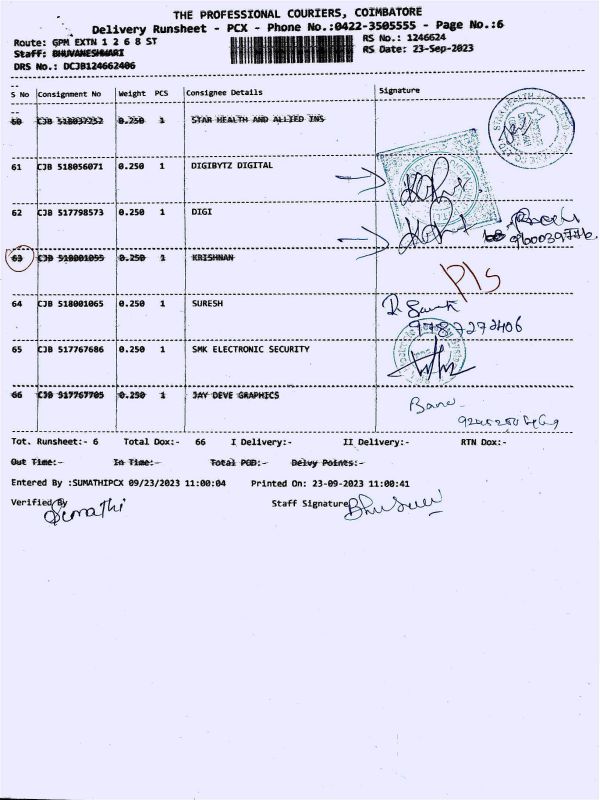 THE PROFESSIONAL COURIERS, COIMBATORE
Delivery Runsheet - PCX - Phone No.:0422-3505555 - Page No.:6
Route: GPM EXTN 1 2 6 8 ST
RS No.: 1246624
Staff: BHUVANESHWARI
RS Date: 23-Sep-2023
DRS No.: DCJB124662406
S No Consignment No Weight PCS Consignee Details Signature
60 CJB 518037252 0.250 1 STAR HEALTH AND ALLIED INS
61 CJB 518056071 0.250 1 DIGIBYTZ DIGITAL
62 CJB 517798573 0.250 1 DIGI
63 CJB 518001055 0.250 1 KRISHNAN
Pls
64 CJB 518001065 0.250 1 SURESH
9787272406
65 CJB 517767686 0.250 1 SMK ELECTRONIC SECURITY
66 CJB 517767705 0.250 1 JAY DEVE GRAPHICS
Tot. Runsheet:- 6 Total Dox:- 66 I Delivery:- II Delivery:- RTN Dox:-
Out Time:- In Time:- Total POD:- Delvy Points:-
Entered By :SUMATHIPCX 09/23/2023 11:00:04 Printed On: 23-09-2023 11:00:41
Verified By Staff Signature
Sumathi